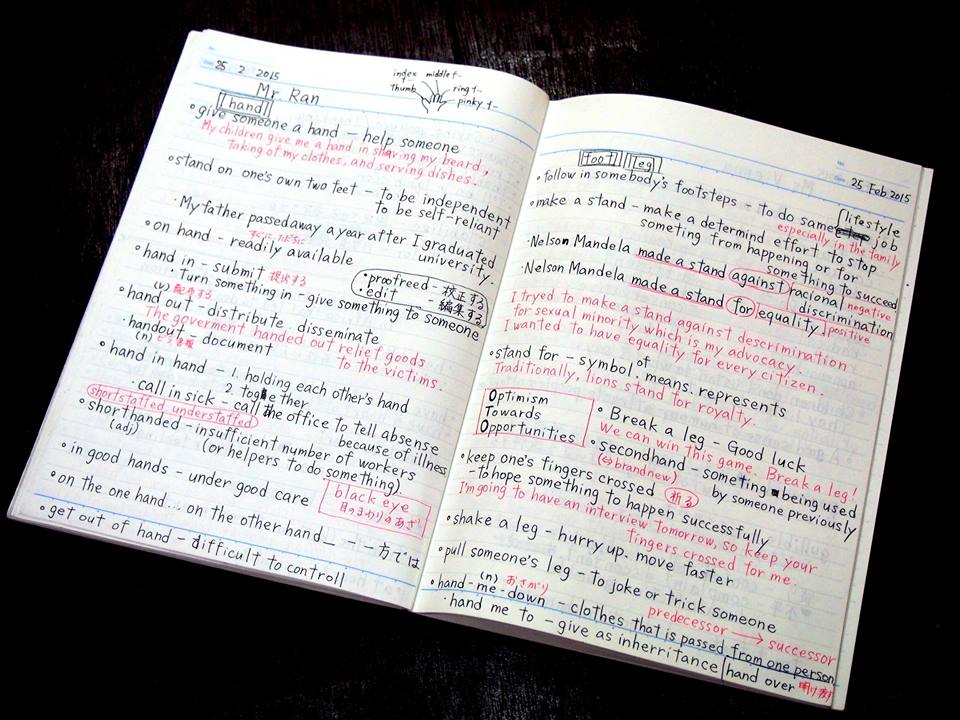 25 2 2015
Mr. Ran
index f- middle f-
Thumb ring f-
pinky f-
hand
• give someone a hand – help someone
My children give me a hand in shaving my beard,
Taking of my clothes, and serving dishes.
• stand on one's own two feet – to be independent
to be self-reliant
・My father passed away a year after I graduated
university.
• on hand – readily available
すぐに、ただちに
• hand in – submit 提出する
・Turn something in – give something to someone
・proofreed – 校正する
・edit – 編集する
(v) 配布する
• hand out – distribute disseminate
The goverment handed out relief goods
to the victims.
・handout – document
(n) ビラ 書類
• hand in hand – 1. holding each other's hand
2 together
・call in sick – call the office to tell absense
because of illness
shortstaffed understaffed
• shorthanded – insufficient number of workers
(adj) (or helpers to do something)
• in good hands – under good care
black eye
目のまわりのあざ
• on the one hand... on the other hand – 一方では
• get out of hand – difficult to controll
25 Feb 2015
foot leg
• follow in somebody's footsteps – to do same lifestyle
job
especially in the family
• make a stand – make a determind effort to stop
someting from happening or for
something to succeed
・Nelson Mandela made a stand against racional discrimination
negative
・Nelson Mandela made a stand for equality
positive
I tryed to make a stand against descrimination
for sexual minority which is my advocacy.
I wanted to have equality for every citizen.
• stand for – symbol of. means. represents
Traditionally, lions stand for royalty.
Optimism
Towards
Opportunities
• Break a leg – Good luck
We can win this game. Break a leg!
• secondhand – someting being used
(⇔brandnew) by someone previously
• keep one's fingers crossed 祈る
– to hope something to happen successfully
I'm going to have an interview tomorrow, so keep your
fingers crossed for me.
• shake a leg – hurry up. move faster
• pull someone's leg – to joke or trick someone
(n) おさがり
• hand-me-down – clothes that is passed from one person
predecessor → successor
・hand me to – give as inherritance
hand over 明け渡す